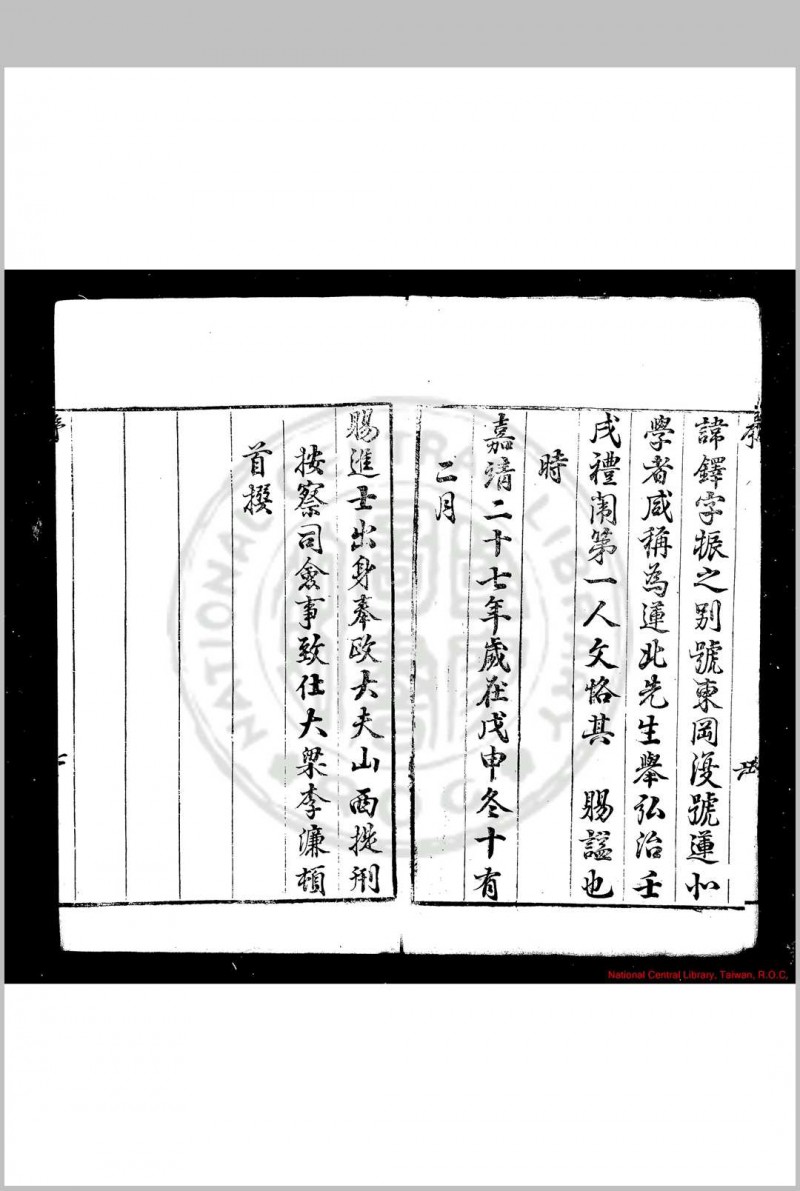 諱鐸字振之别號東岡漫號蓮北
學者咸稱為蓮北先生舉弘治壬
戌禮闈第一人文恪其 賜諡也
時
嘉靖二十七年歲在戊申冬十有
二月
賜進士出身奉政大夫山西提刑
按察司僉事致仕大梁李濂頓
首撰
序
NATIONAL CENTRAL LIBRARY
National Central Library, Taiwan, R.O.C.